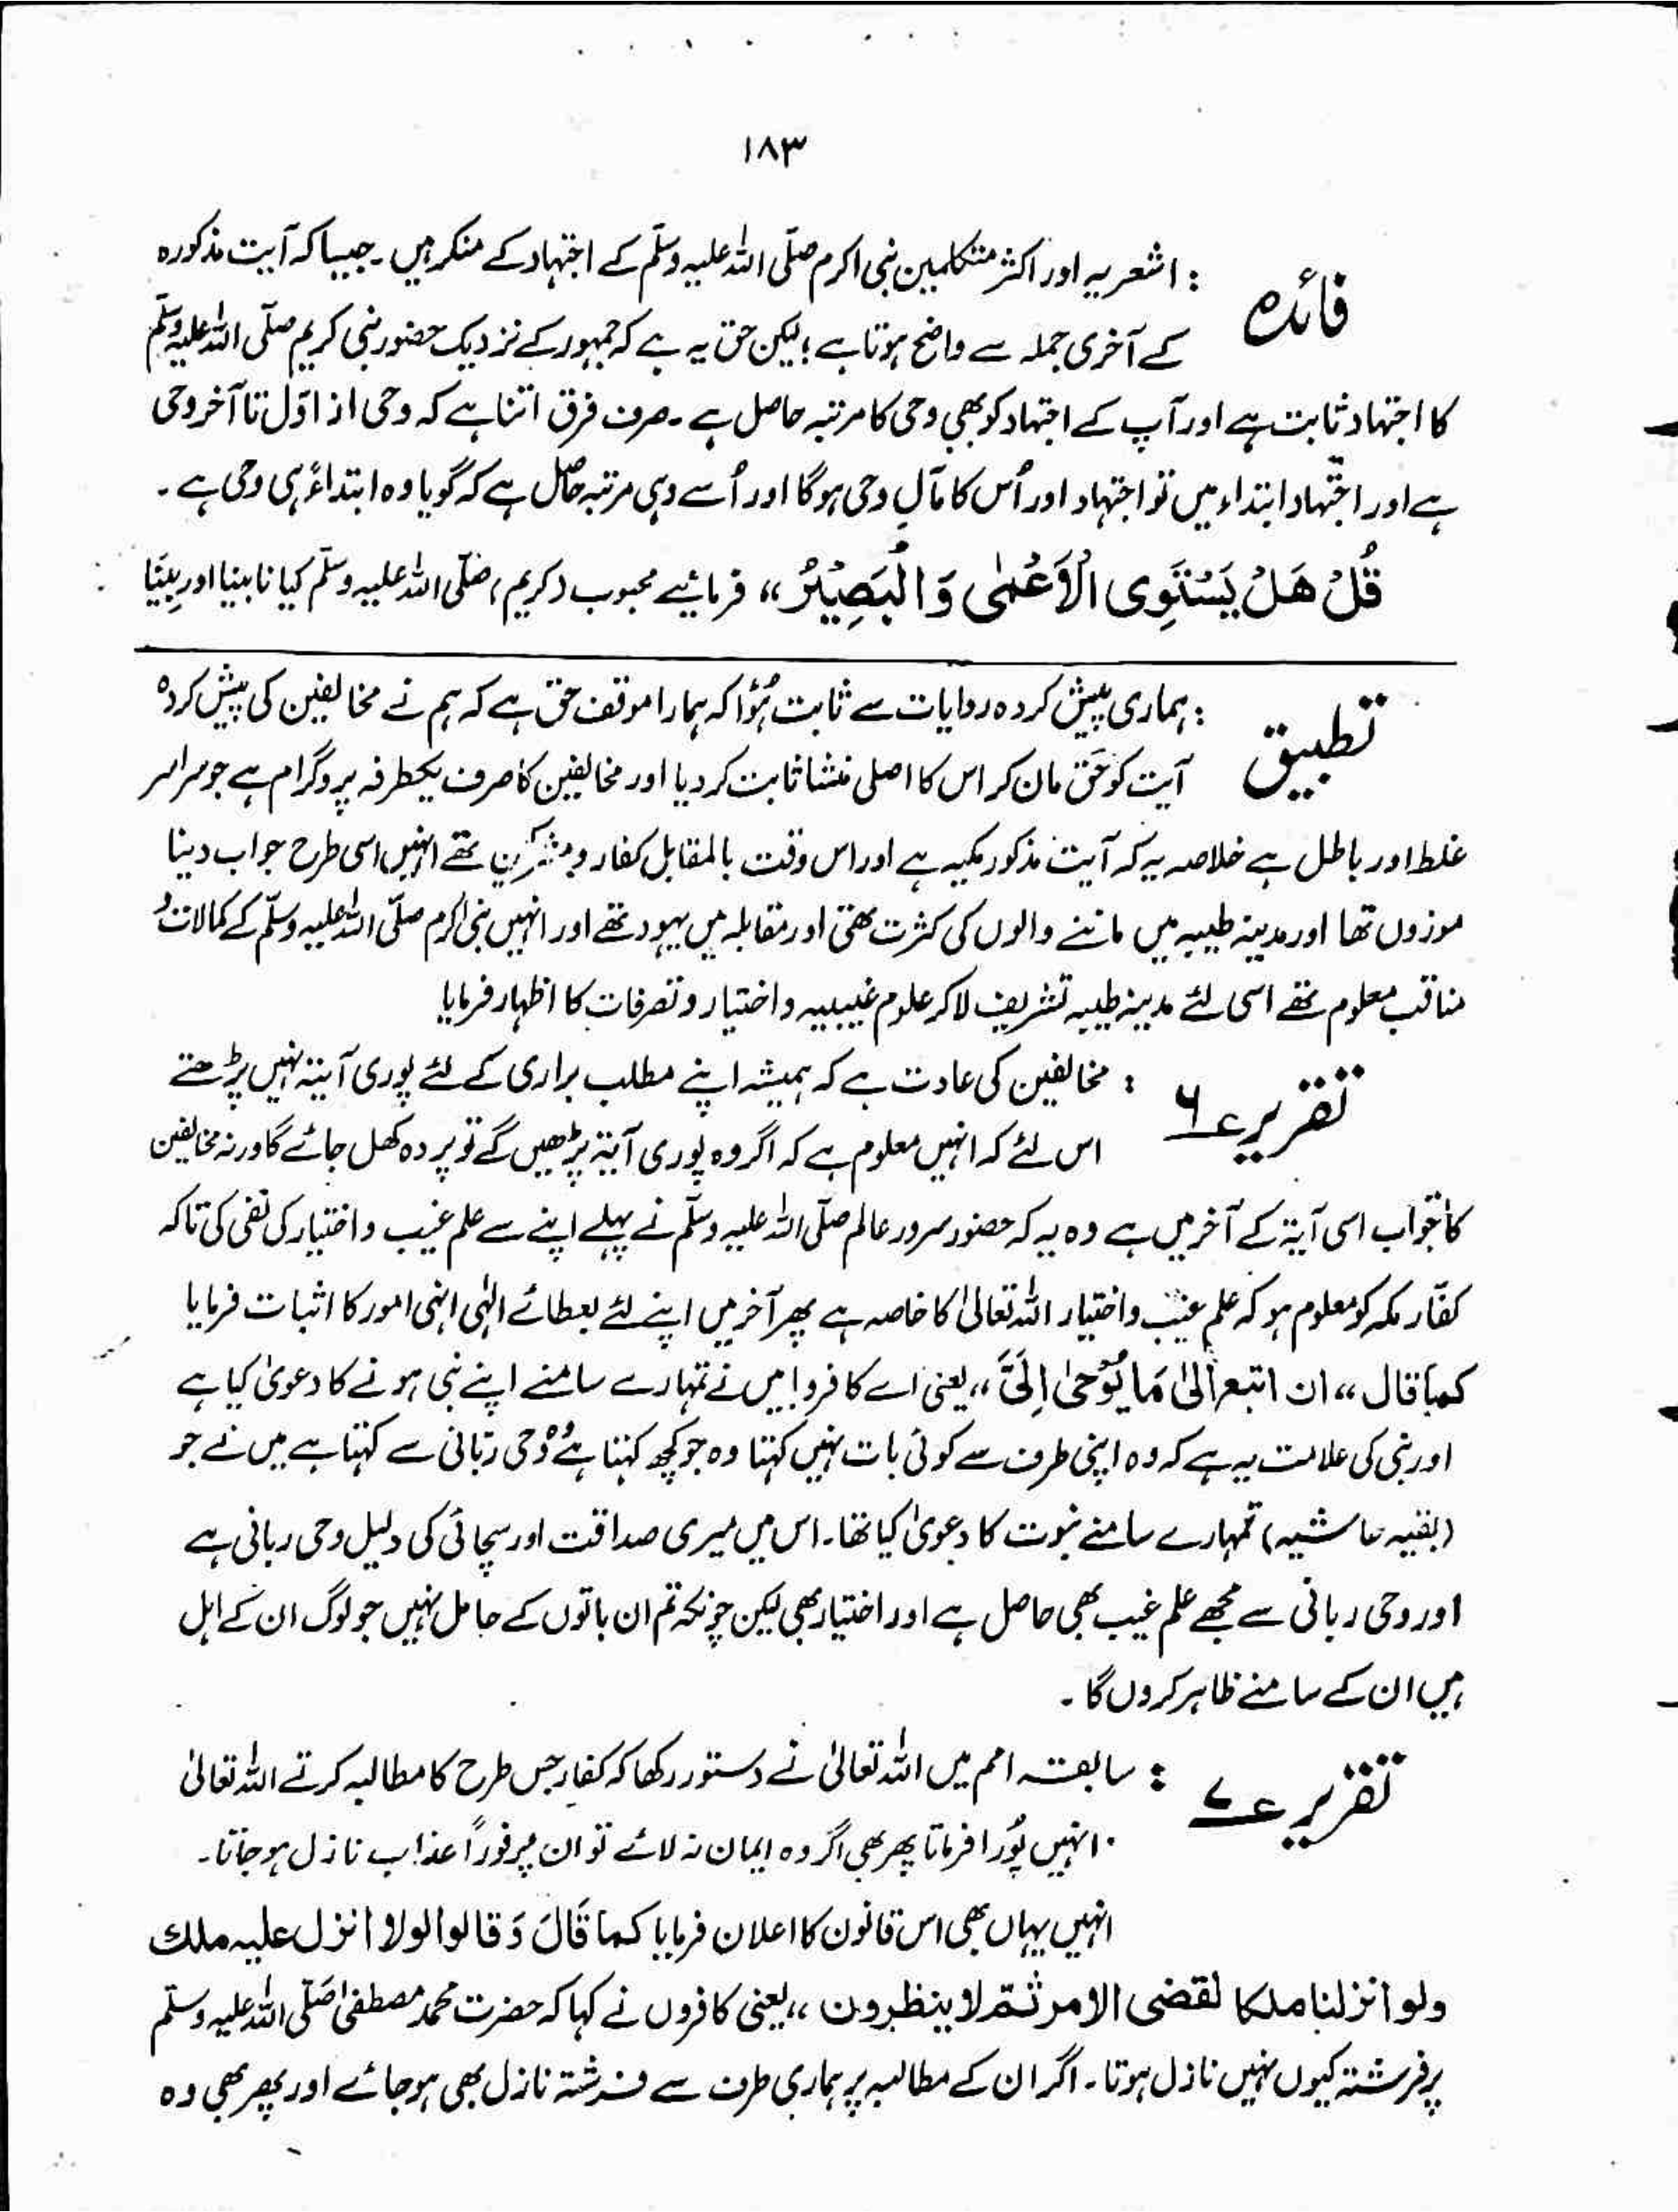 ۱۸۳
فائدہ : اشعریہ اور اکثر متکلمین نبی اکرم صلّی اللہ علیہ وسلّم کے اجتہاد کے منکر ہیں۔ جیسا کہ آیت مذکورہ
کے آخری جملہ سے واضح ہوتا ہے؛ لیکن حق یہ ہے کہ جمہور کے نزدیک حضور نبی کریم صلّی اللہ علیہ وسلّم
کا اجتہاد ثابت ہے اور آپ کے اجتہاد کو بھی وحی کا مرتبہ حاصل ہے۔ صرف فرق اتنا ہے کہ وحی از اوّل تا آخر وحی
ہے اور اجتہاد ابتداء میں تو اجتہاد اور اُس کا مآلِ وحی ہوگا اور اُسے وہی مرتبہ حاصل ہے کہ گویا وہ ابتداءً ہی وحی ہے۔
قُلْ هَلْ يَسْتَوِی الْاَعْمٰی وَالْبَصِيْرُ،، فرمائیے محبوب (کریم، صلّی اللہ علیہ وسلّم کیا نابینا اور بینا
تطبیق : ہماری پیش کردہ روایات سے ثابت ہُوا کہ ہمارا موقف حق ہے کہ ہم نے مخالفین کی پیش کردہ
آیت کو حق مان کر اس کا اصلی منشا ثابت کر دیا اور مخالفین کا صرف یکطرفہ پروگرام ہے جو سراسر
غلط اور باطل ہے خلاصہ یہ کہ آیت مذکور مکیہ ہے اور اس وقت بالمقابل کفار و مشرکین تھے انہیں اسی طرح جواب دینا
موزوں تھا اور مدینہ طیبہ میں ماننے والوں کی کثرت تھی اور مقابلہ میں یہود تھے اور انہیں نبی اکرم صلّی اللہ علیہ وسلّم کے کمالات و
مناقب معلوم تھے اسی لئے مدینہ طیبہ تشریف لا کر علوم غیبیہ و اختیار و تصرفات کا اظہار فرمایا
تقریر ع۶ : مخالفین کی عادت ہے کہ ہمیشہ اپنے مطلب براری کے لئے پوری آیتہ نہیں پڑھتے
اس لئے کہ انہیں معلوم ہے کہ اگر وہ پوری آیتہ پڑھیں گے تو پردہ کھل جائے گا ورنہ مخالفین
کا جواب اسی آیۃ کے آخر میں ہے وہ یہ کہ حضور سرور عالم صلّی اللہ علیہ وسلّم نے پہلے اپنے سے علم غیب و اختیار کی نفی کی تاکہ
کفّار مکہ کو معلوم ہو کہ علم غیب و اختیار اللہ تعالیٰ کا خاصہ ہے پھر آخر میں اپنے لئے بعطائے الٰہی انہی امور کا اثبات فرمایا
کما قال ،، ان اتبع الیٰ مَا یُوْحیٰ اِلَیَّ ،، یعنی اے کافرو! میں نے تمہارے سامنے اپنے نبی ہونے کا دعویٰ کیا ہے
اور نبی کی علامت یہ ہے کہ وہ اپنی طرف سے کوئی بات نہیں کہتا وہ جو کچھ کہتا ہے وُہ وحی ربّانی سے کہتا ہے میں نے جو
(بقیہ حاشیہ) تمہارے سامنے نبوت کا دعویٰ کیا تھا۔ اس میں میری صداقت اور سچائی کی دلیل وحی ربانی ہے
اور وحی ربانی سے مجھے علم غیب بھی حاصل ہے اور اختیار بھی لیکن چونکہ تم ان باتوں کے حامل نہیں جو لوگ ان کے اہل
ہیں ان کے سامنے ظاہر کروں گا۔
تقریر ع۷ : سابقہ امم میں اللہ تعالیٰ نے دستور رکھا کہ کفار جس طرح کا مطالبہ کرتے اللہ تعالیٰ
انہیں پُورا فرماتا پھر بھی اگر وہ ایمان نہ لائے تو ان پر فوراً عذاب نازل ہو جاتا۔
انہیں یہاں بھی اس قانون کا اعلان فرمایا کما قَالَ وَ قالوا لولا انزل علیہ ملك
ولو انزلنا ملکا لقضی الامر ثم لا ینظرون ،، یعنی کافروں نے کہا کہ حضرت محمد مصطفیٰ صَلّی اللہ علیہ وسلّم
پر فرشتہ کیوں نہیں نازل ہوتا۔ اگر ان کے مطالبہ پر ہماری طرف سے فرشتہ نازل بھی ہو جائے اور پھر بھی وہ